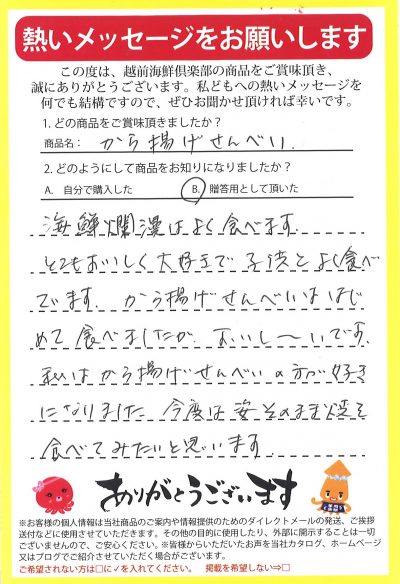 熱いメッセージをお願いします
この度は、越前海鮮倶楽部の商品をご賞味頂き、
誠にありがとうございます。私どもへの熱いメッセージを
何でも結構ですので、ぜひお聞かせ頂ければ幸いです。
1. どの商品をご賞味頂きましたか？
商品名： から揚げせんべい.
2. どのようにして商品をお知りになりましたか？
A. 自分で購入した B. 贈答用として頂いた
海鮮爛漫はよく食べます.
とてもおいしく大好きで子供とよく食べ
ています. から揚げせんべいははじ
めて食べましたが、おいし〜いです.
私はから揚げせんべいの方が好き
になりました 今度は姿そのまま焼を
食べてみたいと思います
ありがとうございます
※お客様の個人情報は当社商品のご案内や情報提供のためのダイレクトメールの発送、ご挨拶
送付などに使用させていただきます。その他の目的に使用したり、外部に開示することは一切
ございませんので、ご安心ください。※皆様からいただいたお声を当社カタログ、ホームページ
又はブログでご紹介させていただく場合がございます。
ご希望されない方は□に✓を入れてください。 掲載を希望しない⇒□